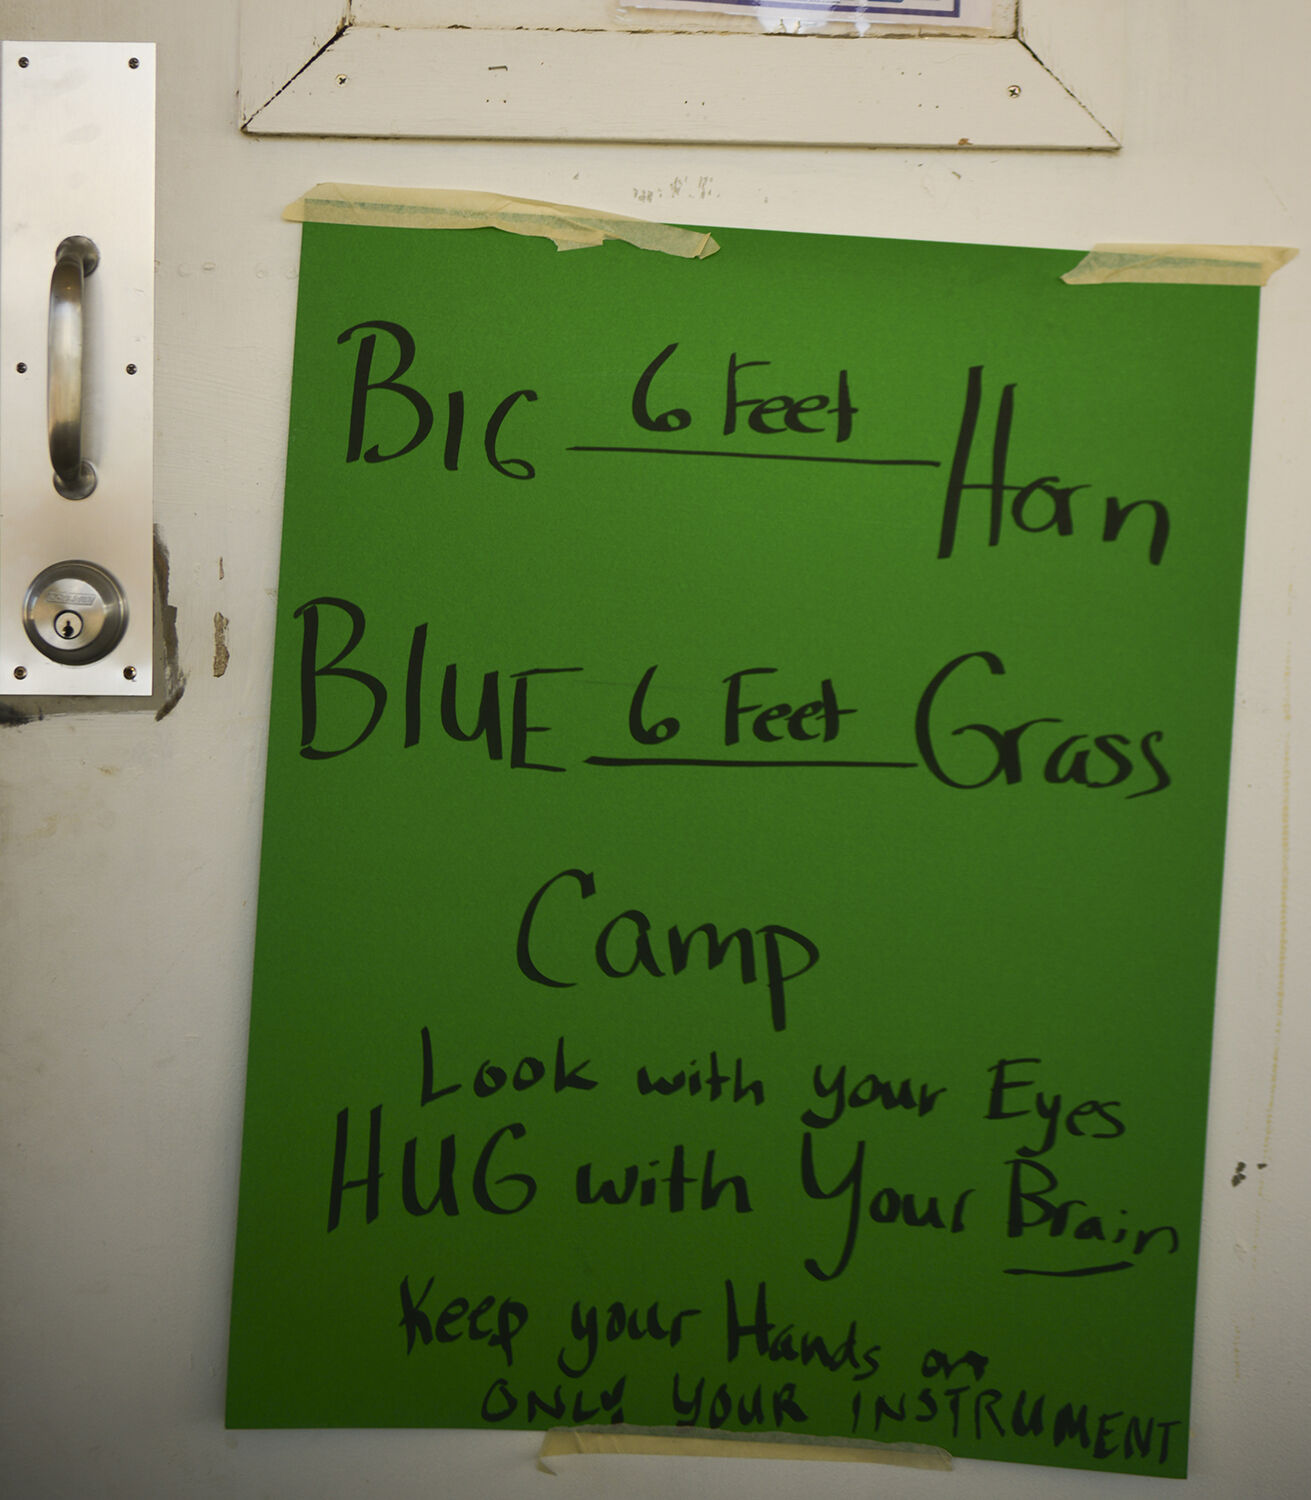 BIG 6 Feet Horn
BLUE 6 Feet Grass
Camp
Look with your Eyes
HUG with Your Brain
Keep your Hands on
ONLY YOUR INSTRUMENT